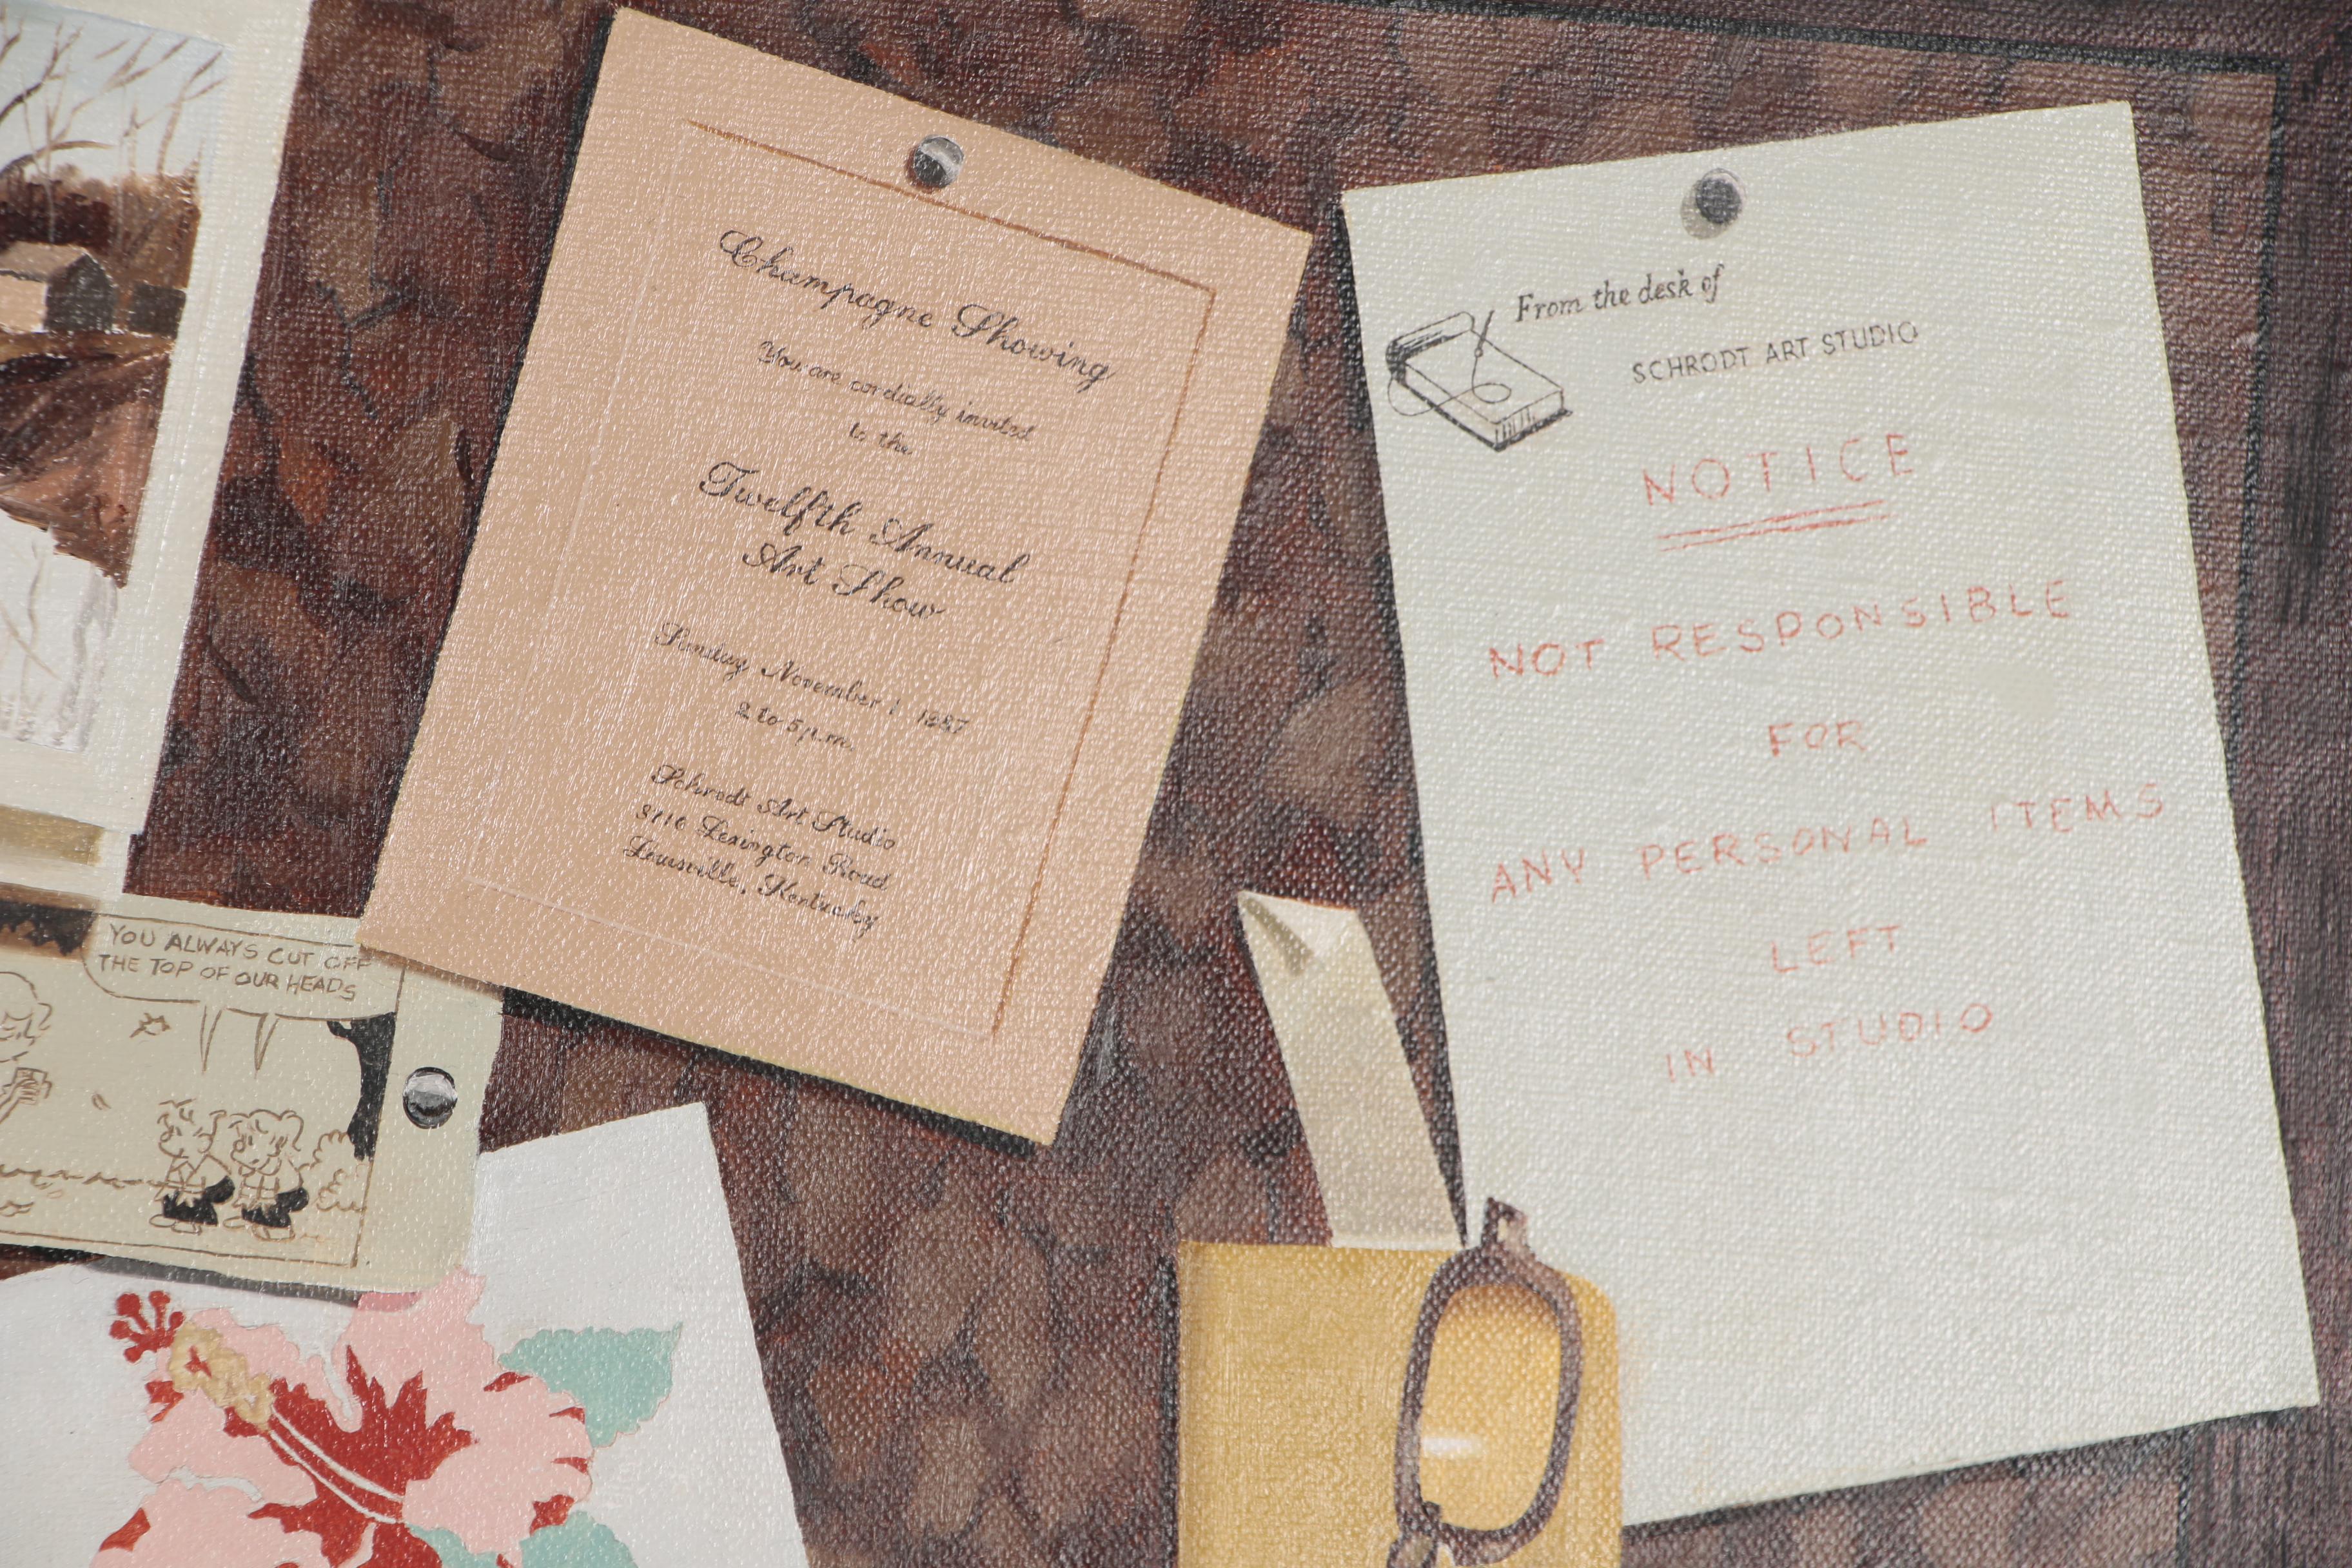 Champagne Showing
You are cordially invited
to the
Twelfth Annual
Art Show
Sunday November 1 1987
2 to 5 p.m.
Schrodt Art Studio
3116 Lexington Road
Louisville, Kentucky
From the desk of
SCHRODT ART STUDIO
NOTICE
NOT RESPONSIBLE
FOR
ANY PERSONAL ITEMS
LEFT
IN STUDIO
YOU ALWAYS CUT OFF
THE TOP OF OUR HEADS